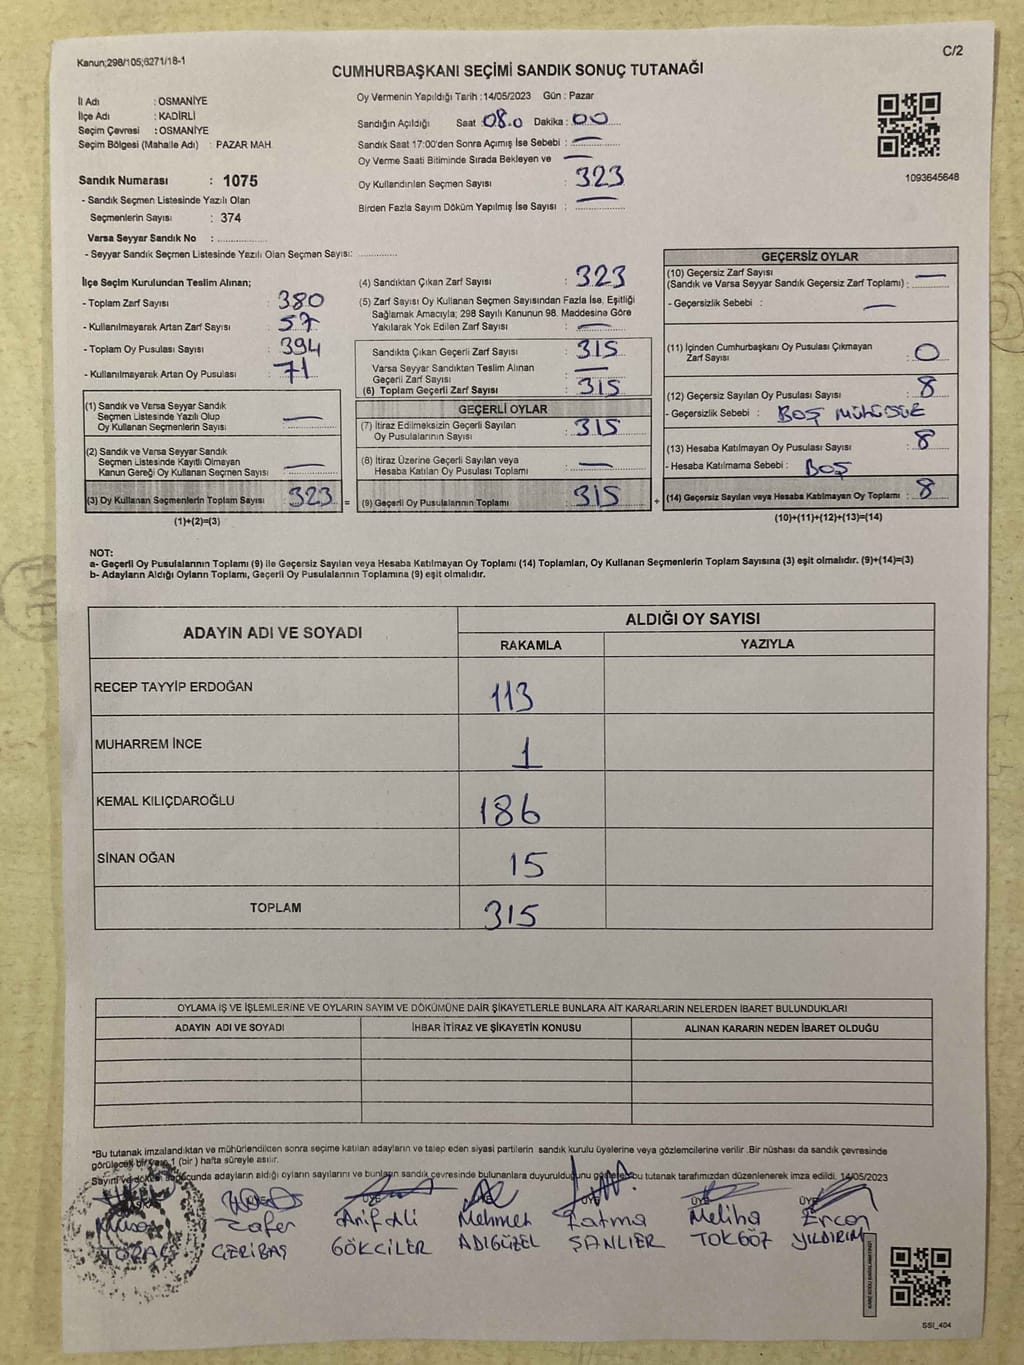 Kanun;298/105;6271/18-1
C/2
CUMHURBAŞKANI SEÇİMİ SANDIK SONUÇ TUTANAĞI
İl Adı : OSMANİYE
İlçe Adı : KADİRLİ
Seçim Çevresi : OSMANİYE
Seçim Bölgesi (Mahalle Adı) : PAZAR MAH.
Sandık Numarası : 1075
- Sandık Seçmen Listesinde Yazılı Olan
Seçmenlerin Sayısı : 374
Varsa Seyyar Sandık No :
- Seyyar Sandık Seçmen Listesinde Yazılı Olan Seçmen Sayısı:
Oy Vermenin Yapıldığı Tarih :14/05/2023 Gün : Pazar
Sandığın Açıldığı Saat 08.0 Dakika : 00
Sandık Saat 17:00'den Sonra Açılmış İse Sebebi : —
Oy Verme Saati Bitiminde Sırada Bekleyen ve —
Oy Kullandırılan Seçmen Sayısı : 323
Birden Fazla Sayım Döküm Yapılmış İse Sayısı : —
1093645648
İlçe Seçim Kurulundan Teslim Alınan;
- Toplam Zarf Sayısı : 380
- Kullanılmayarak Artan Zarf Sayısı : 57
- Toplam Oy Pusulası Sayısı : 394
- Kullanılmayarak Artan Oy Pusulası : 71
(1) Sandık ve Varsa Seyyar Sandık
Seçmen Listesinde Yazılı Olup
Oy Kullanan Seçmenlerin Sayısı : —
(2) Sandık ve Varsa Seyyar Sandık
Seçmen Listesinde Kayıtlı Olmayan
Kanun Gereği Oy Kullanan Seçmen Sayısı : —
(3) Oy Kullanan Seçmenlerin Toplam Sayısı : 323 =
(1)+(2)=(3)
(4) Sandıktan Çıkan Zarf Sayısı : 323
(5) Zarf Sayısı Oy Kullanan Seçmen Sayısından Fazla İse, Eşitliği
Sağlamak Amacıyla; 298 Sayılı Kanunun 98. Maddesine Göre
Yakılarak Yok Edilen Zarf Sayısı : —
Sandıkta Çıkan Geçerli Zarf Sayısı : 315
Varsa Seyyar Sandıktan Teslim Alınan
Geçerli Zarf Sayısı : —
(6) Toplam Geçerli Zarf Sayısı : 315
GEÇERLİ OYLAR
(7) İtiraz Edilmeksizin Geçerli Sayılan
Oy Pusulalarının Sayısı : 315
(8) İtiraz Üzerine Geçerli Sayılan veya
Hesaba Katılan Oy Pusulası Toplamı : —
(9) Geçerli Oy Pusulalarının Toplamı : 315 +
GEÇERSİZ OYLAR
(10) Geçersiz Zarf Sayısı —
(Sandık ve Varsa Seyyar Sandık Geçersiz Zarf Toplamı) :
- Geçersizlik Sebebi : —
(11) İçinden Cumhurbaşkanı Oy Pusulası Çıkmayan
Zarf Sayısı : 0
(12) Geçersiz Sayılan Oy Pusulası Sayısı : 8
- Geçersizlik Sebebi : BOŞ MÜHÜSÜZ
(13) Hesaba Katılmayan Oy Pusulası Sayısı : 8
- Hesaba Katılmama Sebebi : BOŞ
(14) Geçersiz Sayılan veya Hesaba Katılmayan Oy Toplamı : 8
(10)+(11)+(12)+(13)=(14)
NOT:
a- Geçerli Oy Pusulalarının Toplamı (9) ile Geçersiz Sayılan veya Hesaba Katılmayan Oy Toplamı (14) Toplamları, Oy Kullanan Seçmenlerin Toplam Sayısına (3) eşit olmalıdır. (9)+(14)=(3)
b- Adayların Aldığı Oyların Toplamı, Geçerli Oy Pusulalarının Toplamına (9) eşit olmalıdır.
ADAYIN ADI VE SOYADI
ALDIĞI OY SAYISI
RAKAMLA YAZIYLA
RECEP TAYYİP ERDOĞAN 113
MUHARREM İNCE 1
KEMAL KILIÇDAROĞLU 186
SİNAN OĞAN 15
TOPLAM 315
OYLAMA İŞ VE İŞLEMLERİNE VE OYLARIN SAYIM VE DÖKÜMÜNE DAİR ŞİKAYETLERLE BUNLARA AİT KARARLARIN NELERDEN İBARET BULUNDUKLARI
ADAYIN ADI VE SOYADI İHBAR İTİRAZ VE ŞİKAYETİN KONUSU ALINAN KARARIN NEDEN İBARET OLDUĞU
*Bu tutanak imzalandıktan ve mühürlendikten sonra seçime katılan adayların ve talep eden siyasi partilerin sandık kurulu üyelerine veya gözlemcilerine verilir .Bir nüshası da sandık çevresinde
görülecek bir yere 1 (bir ) hafta süreyle asılır.
Sayım ve döküm sonucunda adayların aldığı oyların sayılarını ve bunların sandık çevresinde bulunanlara duyurulduğunu gösterir bu tutanak tarafımızdan düzenlenerek imza edildi. 14/05/2023
ÜYE ÜYE ÜYE
Zafer Arif Ali Mehmet Fatma Meliha Ercan
TOPAÇ GERİBAŞ GÖKCİLER ADIGÜZEL ŞANLIER TOKGÖZ YILDIRIM
SSI_404